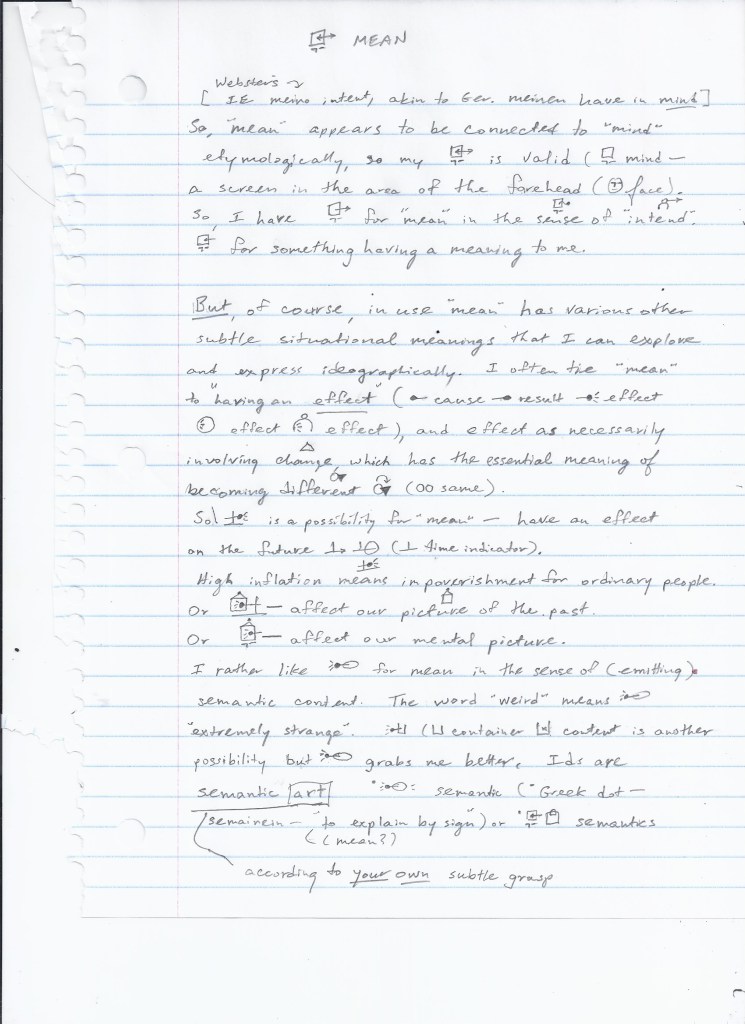 MEAN
Webster's
[ IE meino intent, akin to Ger. meinen have in mind]
So, "mean" appears to be connected to "mind"
etymologically, so my is valid ( mind —
a screen in the area of the forehead ( face).
So, I have for "mean" in the sense of "intend".
for something having a meaning to me.
But, of course, in use "mean" has various other
subtle situational meanings that I can explore
and express ideographically. I often tie "mean"
to "having an effect" ( cause result effect
effect effect), and effect as necessarily
involving change, which has the essential meaning of
becoming different (OO same).
So is a possibility for "mean" — have an effect
on the future (⊥ time indicator).
High inflation means impoverishment for ordinary people.
Or — affect our picture of the past.
Or — affect our mental picture.
I rather like for mean in the sense of (emitting)
semantic content. The word "weird" means
"extremely strange". ( container content is another
possibility but grabs me better. Ids are
semantic art semantic (• Greek dot —
semairein — "to explain by sign") or semantics
(mean?)
according to your own subtle grasp